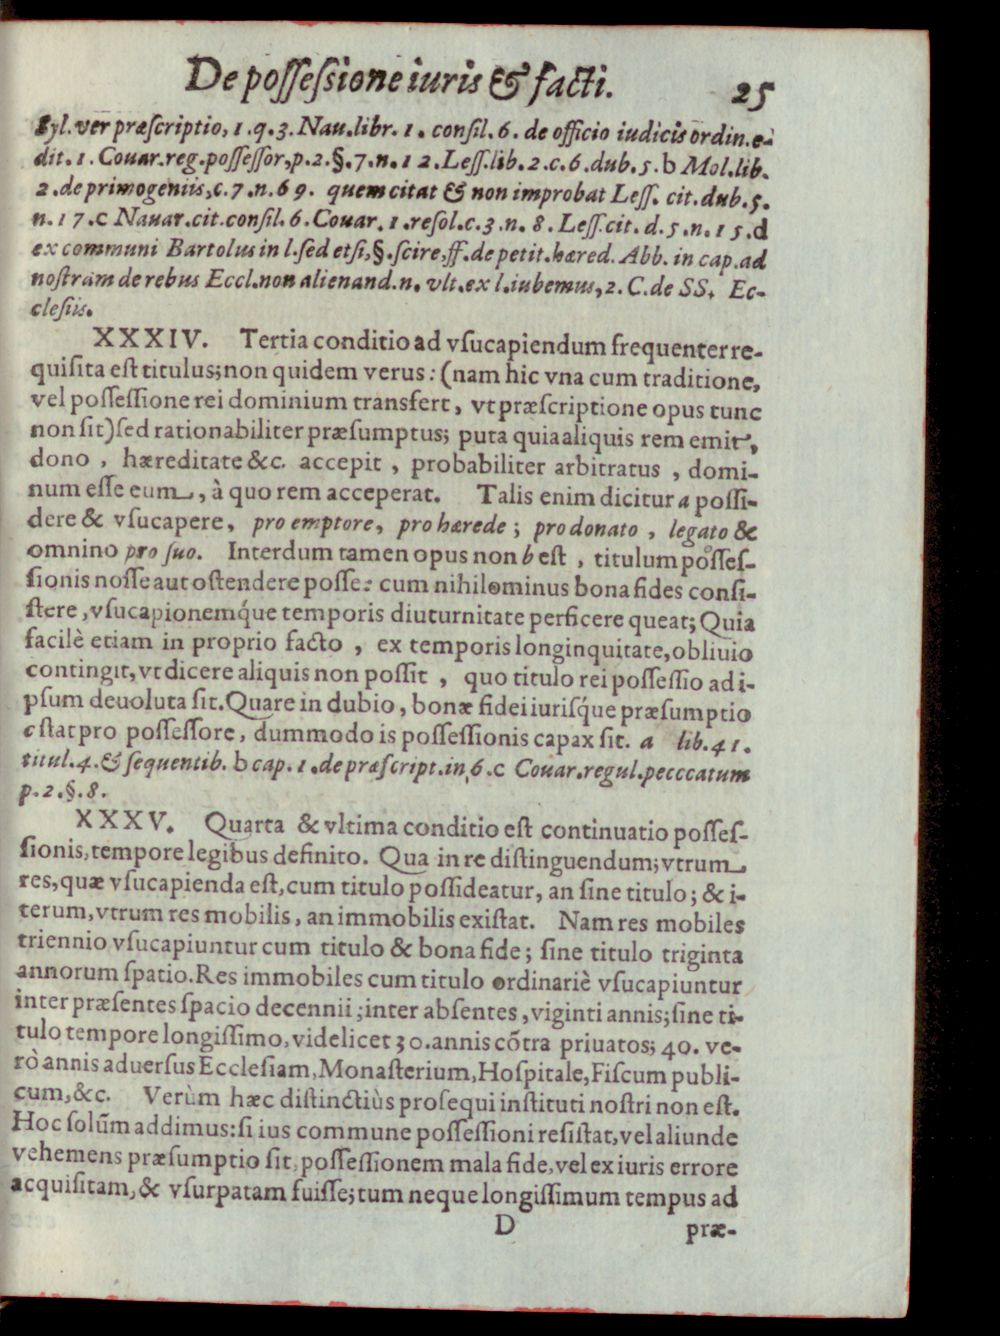 De possessione iuris & facti. 25
Syl. ver præscriptio, 1. q. 3. Nau. libr. 1. consil. 6. de officio iudicis ordin. e-
dit. 1. Couar. reg. possessor, p. 2. §. 7. n. 12. Less. lib. 2. c. 6. dub. 5. b Mol. lib.
2. de primogeniis, c. 7. n. 69. quem citat & non improbat Less. cit. dub. 5.
n. 17. c Nauar. cit. consil. 6. Couar. 1. resol. c. 3. n. 8. Less. cit. d. 5. n. 15. d
ex communi Bartolus in l. sed etsi, §. scire, ff. de petit. hæred. Abb. in cap. ad
nostram de rebus Eccl. non alienand. n. vlt. ex l. iubemus, 2. C. de SS. Ec-
clesiis.
XXXIV. Tertia conditio ad vsucapiendum frequenter re-
quisita est titulus; non quidem verus: (nam hic vna cum traditione,
vel possessione rei dominium transfert, vt præscriptione opus tunc
non sit) sed rationabiliter præsumptus; puta quia aliquis rem emit,
dono, hæreditate &c. accepit, probabiliter arbitratus, domi-
num esse eum, à quo rem acceperat. Talis enim dicitur a possi-
dere & vsucapere, pro emptore, pro hærede; pro donato, legato &
omnino pro suo. Interdum tamen opus non b est, titulum posses-
sionis nosse aut ostendere posse: cum nihilominus bona fides consi-
stere, vsucapionemq́ue temporis diuturnitate perficere queat; Quia
facilè etiam in proprio facto, ex temporis longinquitate, obliuio
contingit, vt dicere aliquis non possit, quo titulo rei possessio ad i-
psum deuoluta sit. Quare in dubio, bonæ fidei iurisq́ue præsumptio
c stat pro possessore, dummodo is possessionis capax sit. a lib. 41.
titul. 4. & sequentib. b cap. 1. de præscript. in 6. c Couar. regul. pecccatum
p. 2. §. 8.
XXXV. Quarta & vltima conditio est continuatio posses-
sionis, tempore legibus definito. Qua in re distinguendum; vtrum
res, quæ vsucapienda est, cum titulo possideatur, an sine titulo; & i-
terum, vtrum res mobilis, an immobilis existat. Nam res mobiles
triennio vsucapiuntur cum titulo & bona fide; sine titulo triginta
annorum spatio. Res immobiles cum titulo ordinariè vsucapiuntur
inter præsentes spacio decennii; inter absentes, viginti annis; sine ti-
tulo tempore longissimo, videlicet 30. annis cõtra priuatos; 40. ve-
rò annis aduersus Ecclesiam, Monasterium, Hospitale, Fiscum publi-
cum, &c. Verùm hæc distinctiùs prosequi instituti nostri non est.
Hoc solũm addimus: si ius commune possessioni resistat, vel aliunde
vehemens præsumptio sit, possessionem mala fide, vel ex iuris errore
acquisitam, & vsurpatam fuisse; tum neque longissimum tempus ad
D præ-